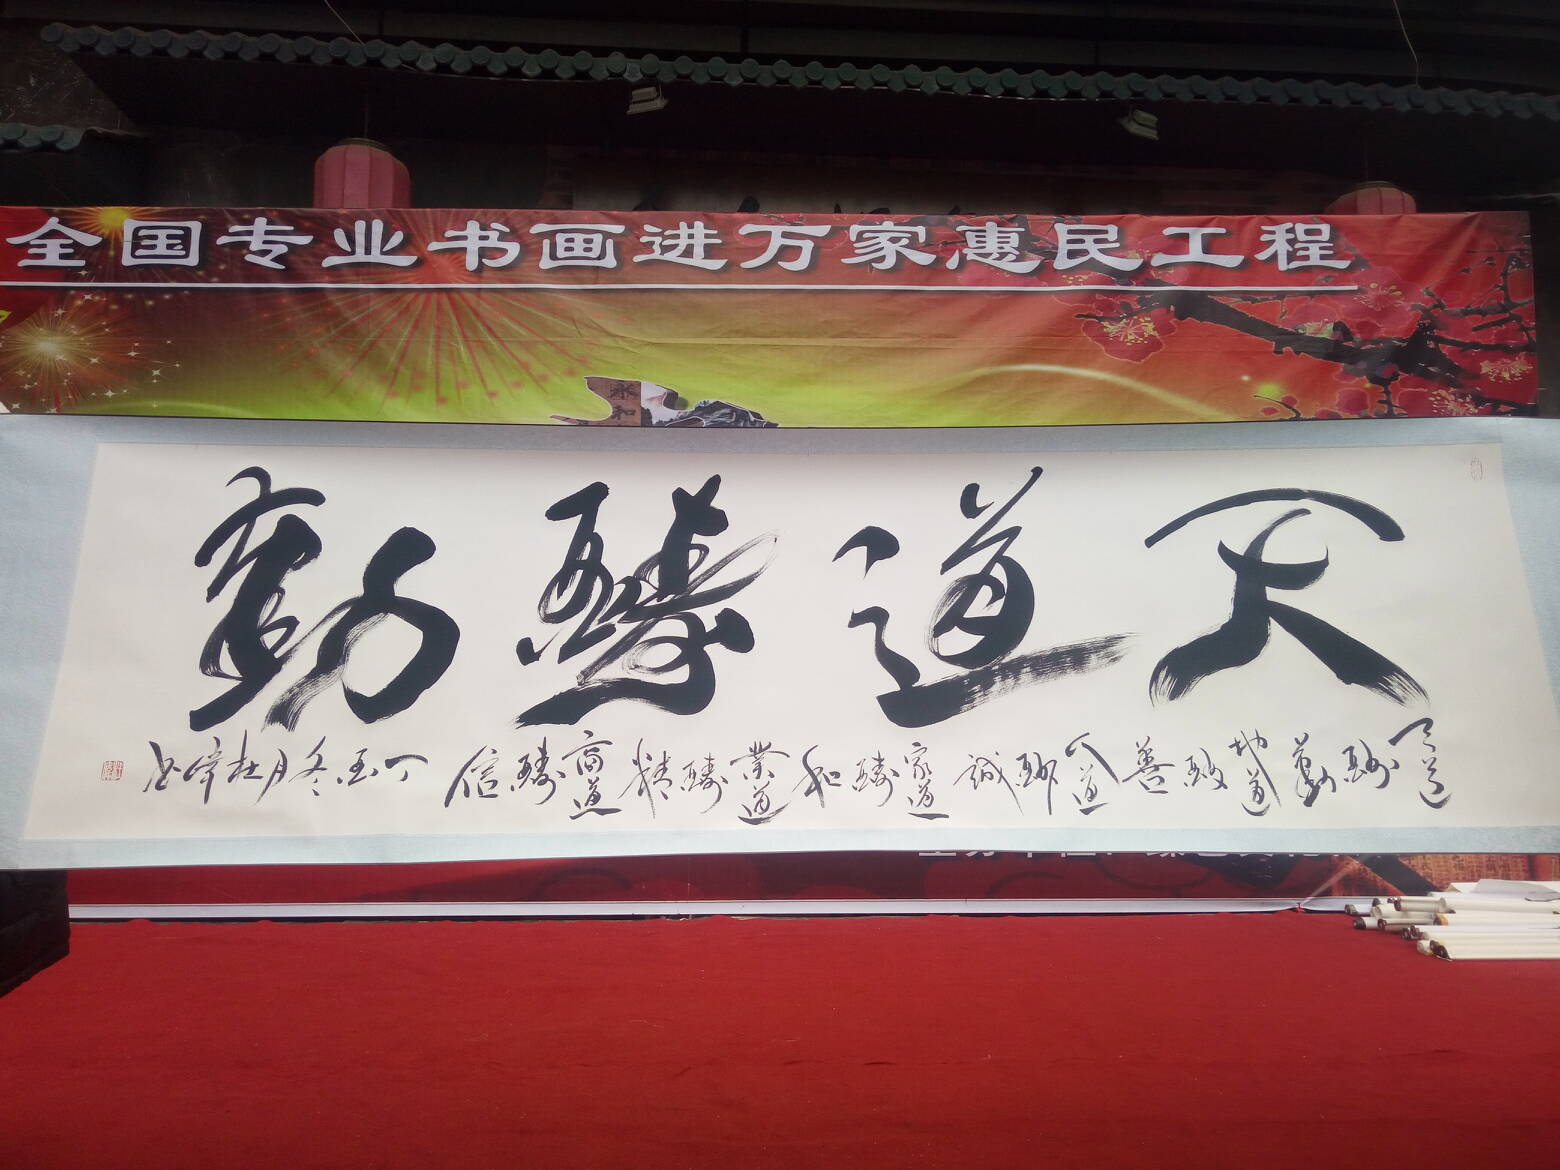 全国专业书画进万家惠民工程
永和
天道醻勤
天道酬勤 地道酬善 人道酬誠 家道醻和 業道醻精 商道醻信 丁酉冬月杜